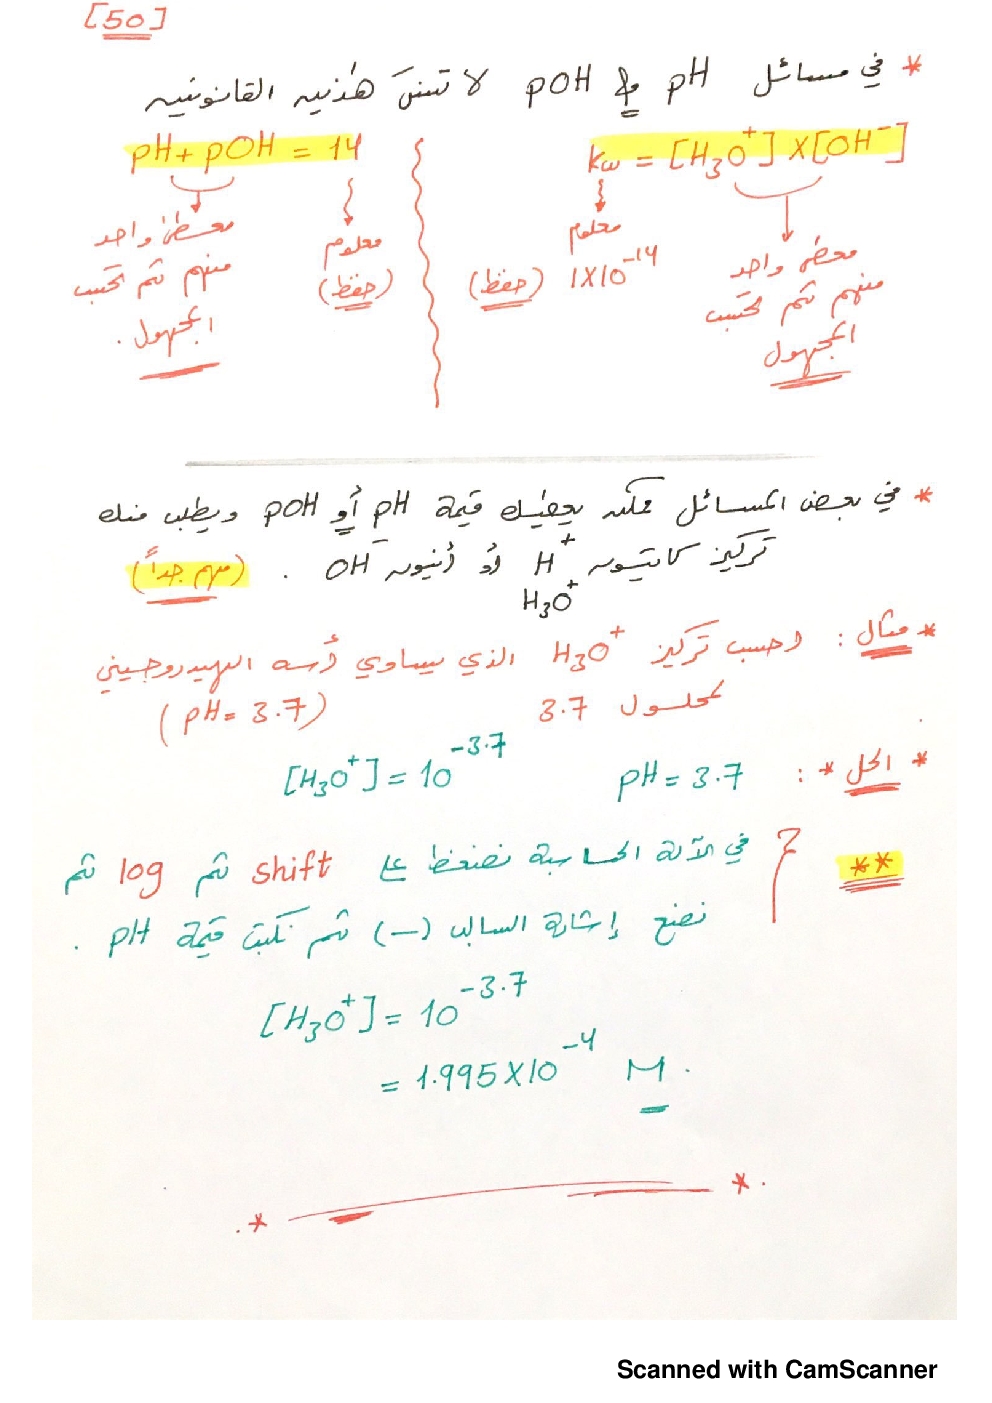 [50]
* في مسائل pH و pOH لا تنسَ هذين القانونين
Kw = [H₃O⁺] X [OH⁻]
pH + pOH = 14
معلوم
1X10⁻¹⁴ (حفظ)
معطى واحد
منهم ثم نحسب
المجهول
معلوم
(حفظ)
معطى واحد
منهم ثم نحسب
المجهول .
* في بعض المسائل ممكن يعطيك قيمة pH أو pOH ويطلب منك
تركيز كاتيون H⁺ أو أنيون OH⁻ . (مهم جداً)
H₃O⁺
* مثال : احسب تركيز H₃O⁺ الذي يساوي أسه الهيدروجيني
لمحلول 3.7 (pH = 3.7)
* الحل * : pH = 3.7 [H₃O⁺] = 10⁻³·⁷
** في الآلة الحاسبة نضغط على shift ثم log ثم
نضع إشارة السالب (−) ثم نكتب قيمة pH .
[H₃O⁺] = 10⁻³·⁷
= 1.995 X 10⁻⁴ M .
Scanned with CamScanner